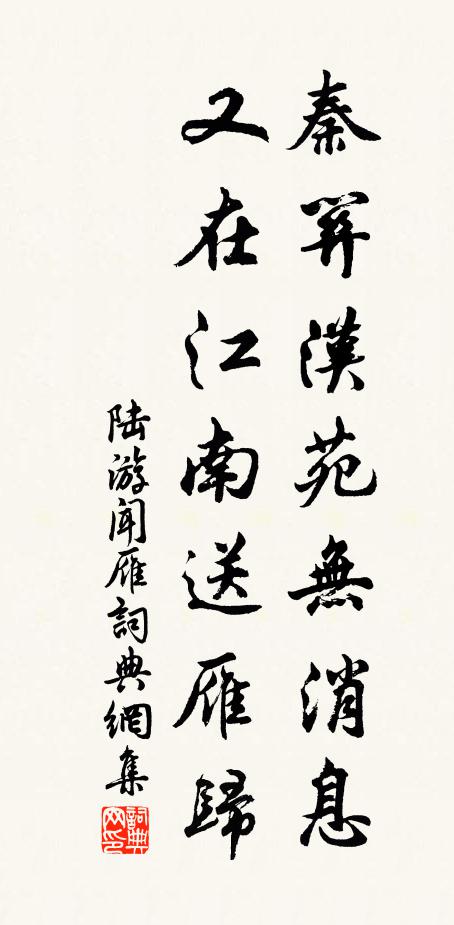 秦關漢苑無消息
又在江南送雁歸
陆游闻雁詞典網集
詞典
网印